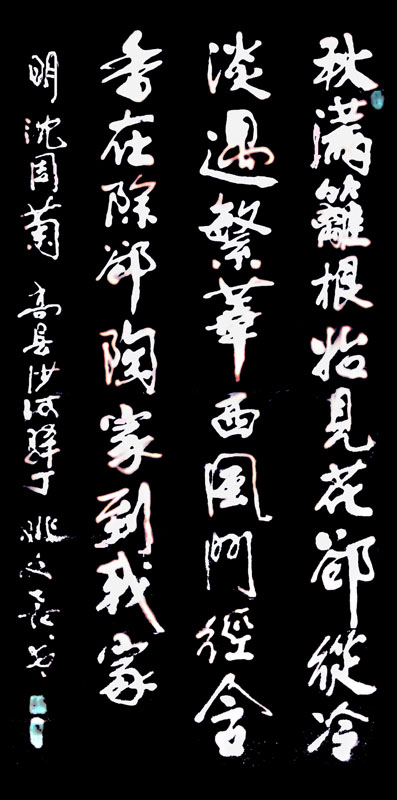 秋滿籬根始見花卻從冷
淡遇繁華西風門徑含
香在除卻陶家到我家
明沈周菊 高县沙河驿